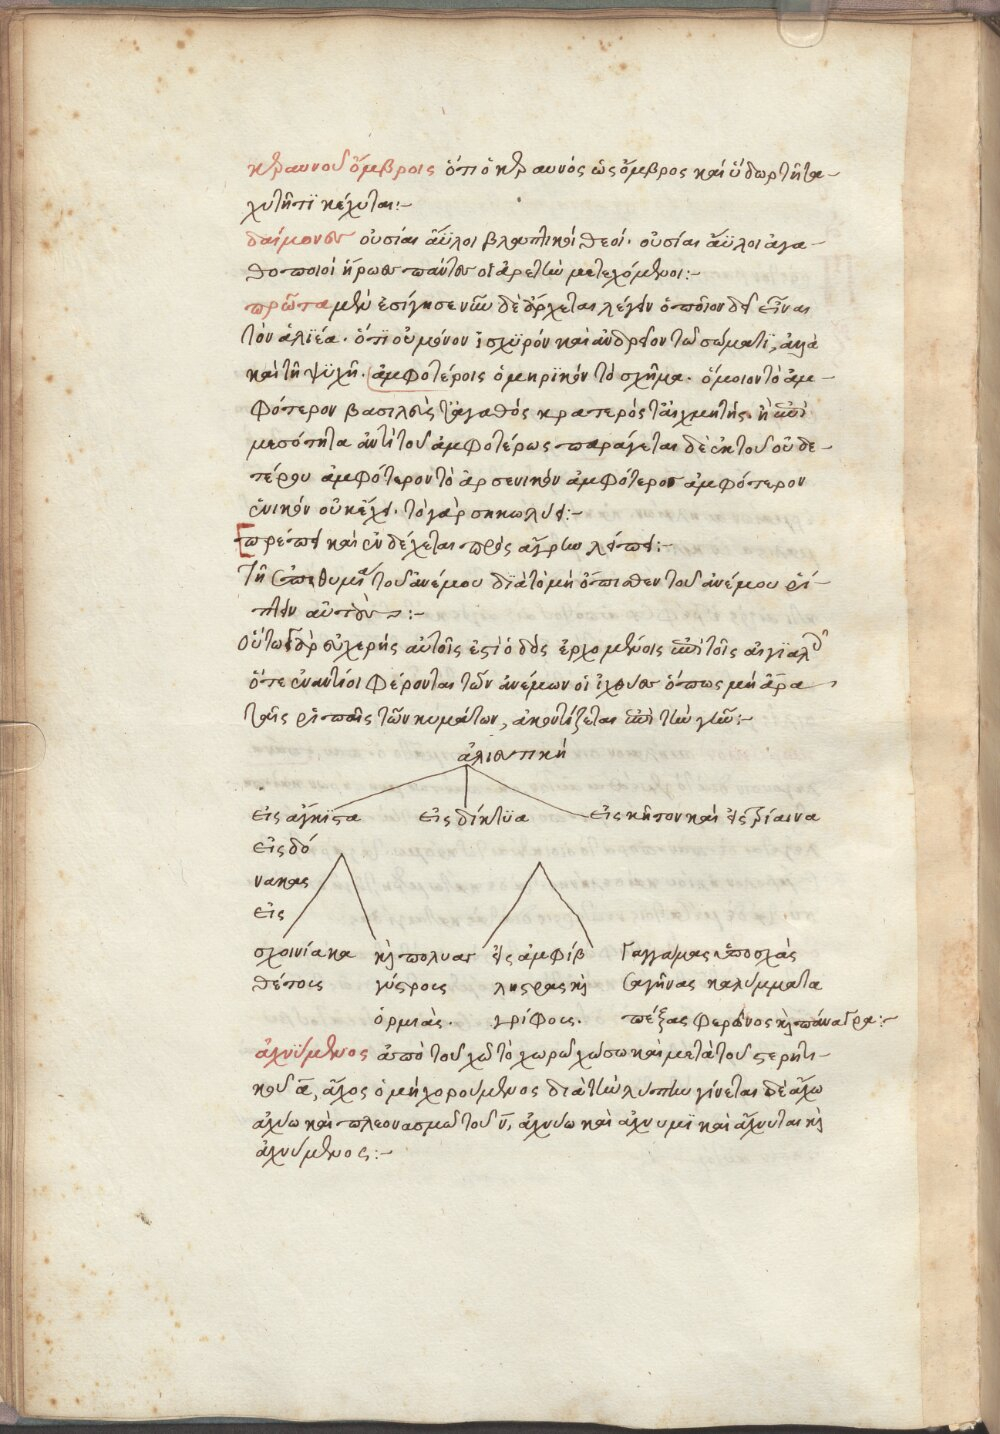 κεραυνοῦ ὄμβροις ὅτι ὁ κεραυνός ὡς ὄμβρος καὶ ὕδωρ τῆ τα-
χυτῆτι κέχυται:-
δαίμονες οὐσίαι ἄϋλοι βλαπτικοί θεοί· οὐσίαι ἄϋλοι ἀγα-
θοποιοί ἥρωες πάντες οἱ ἀρετῶν μετεχόμενοι:-
πρῶτα μὲν ἐσίγησεν νῦν δὲ ἄρχεται λέγειν ὁποῖον δεῖ εἶναι
τὸν ἁλιέα· ὅτι οὐ μόνον ἰσχυρόν καὶ ἀνδρεῖον τῶ σώματϊ, ἀλλὰ
καὶ τῆ ψυχῆ· ἀμφοτέροις ὁμηρϊκόν τὸ σχῆμα· ὅμοιον τὸ ἀμ-
φότερον βασιλεὺς τ' ἀγαθός κρατερός τ' αἰχμητής· ἢ ἐπὶ
μεσότητα ἀντὶ τοῦ ἀμφοτέρως παράγεται δὲ ἐκ τοῦ οὐδε-
τέρου ἀμφότερον τὸ ἀρσενικόν ἀμφότερος ἀμφότερον
ἑνικόν οὐκ ἔχει· τὸ γὰρ
πρέπει καὶ ἐνδέχεται πρὸς ἄγραν λείπει:-
τῆ ἐπιθυμία τοῦ ἀνέμου διὰ τὸ μὴ ὄπισθεν τοῦ ἀνέμου ῥί-
πτειν αὐτοὺς:-
οὕτω γὰρ εὐχερής αὐτοῖς ἐστὶ ὁδὸς ἐρχομένοις ἐπὶ τοῖς αἰγιαλοῖς
ὅτε ἐναντίοι φέρονται τῶν ἀνέμων οἱ ἰχθύες ὅπως μὴ ἄρα
ταῖς ῥιπαῖς τῶν κυμάτων, ἀκοντίζεται ἐπὶ τὴν γῆν:-
ἁλιευτική
εἰς ἄγκιστρα εἰς δίκτϋα εἰς κῆτον καὶ εἰς τρίαινα
εἰς δό
νακας
εἰς
σχοινία κα καὶ πολυαγ εἰς ἀμφίβ γαγγάμας ὑποχὰς
θέτοις γίστροις ληστρας καὶ σαγῆνας καλύμματα
ὁρμιὰς· γρίφοις· πέξας φερόνος καὶ πάναγρα:-
ἀχνύμενος ἀπὸ τοῦ χῶ τὸ χωρῶ χώσω καὶ μετὰ τοῦ στερητι-
κοῦ α, ἄχος ὁ μὴ χορούμενος διὰ τὴν λύπην γίνεται δὲ ἄχω
ἀχύω καὶ πλεονασμῶ τοῦ ν, ἀχνύω καὶ ἄχνυμϊ καὶ ἄχνυται καὶ
ἀχνύμενος:-